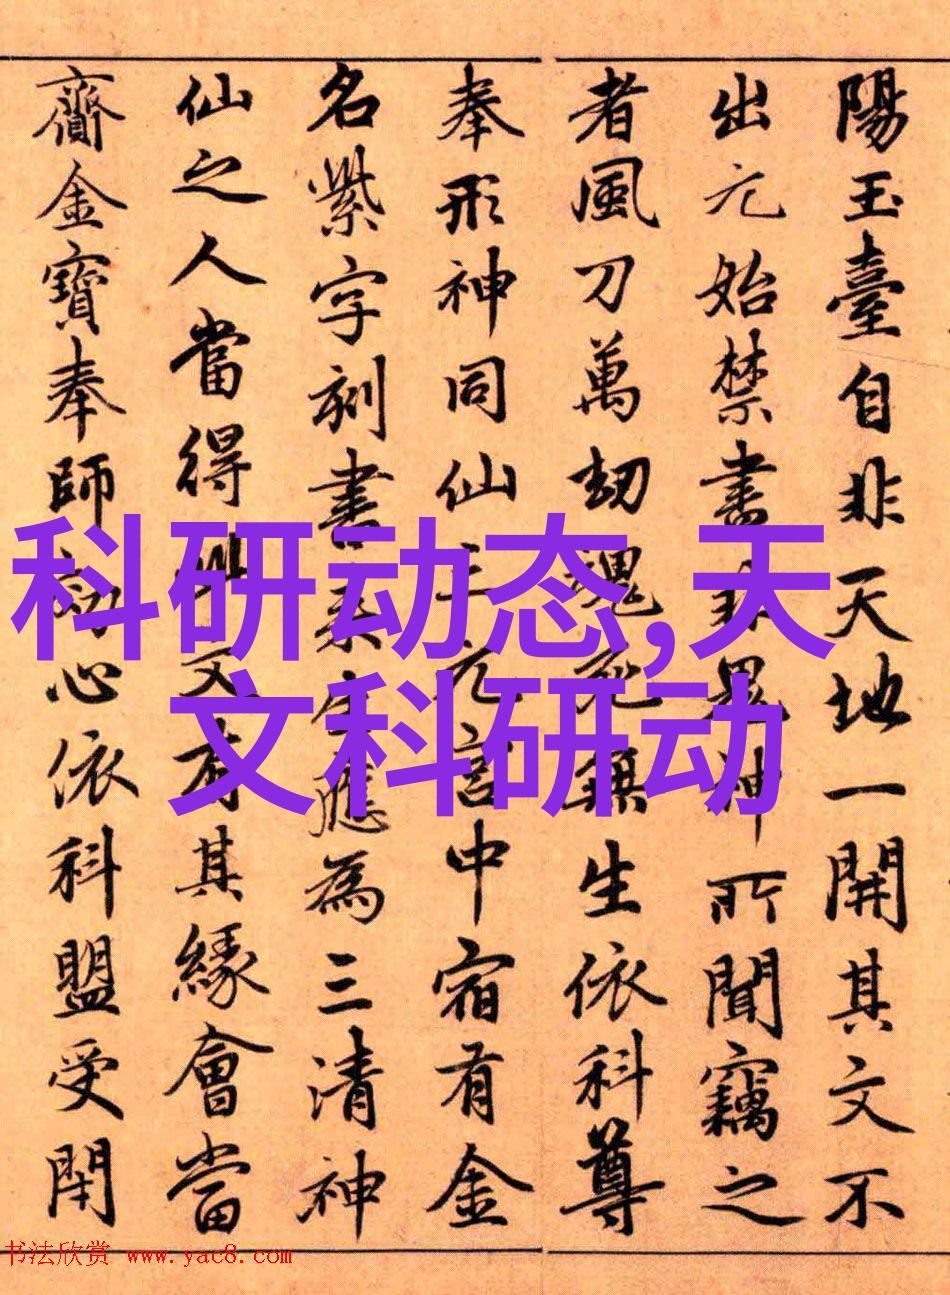 陽玉臺自非天地一開其文不
出元始禁書非鬼神所聞竊之
者風刀萬劫魂死無生依科尊
奉形神同仙三元宮中宿有金
名紫字刻書來生應為三清神
仙之人當得此文有其緣會當
齎金寶奉師効心依科盟受閇
科研动态,天
文科研动
书法欣赏 www.yac8.com